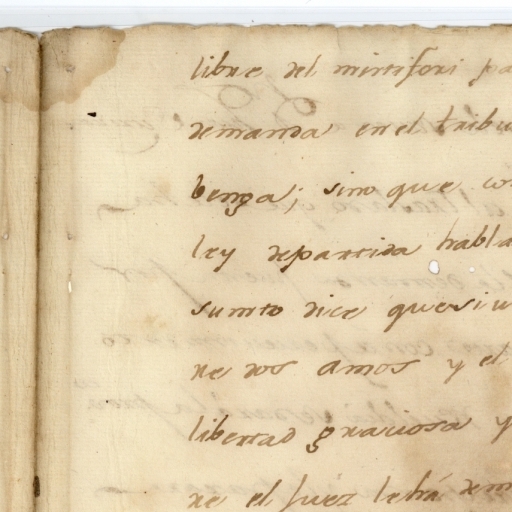 libre del mixtifori pa
demanda en el tribu
benga; sino que co
ley departida habla
sunto dice que si u
ne dos amos y el
libertad graciosa y
ne el Juez le há dem